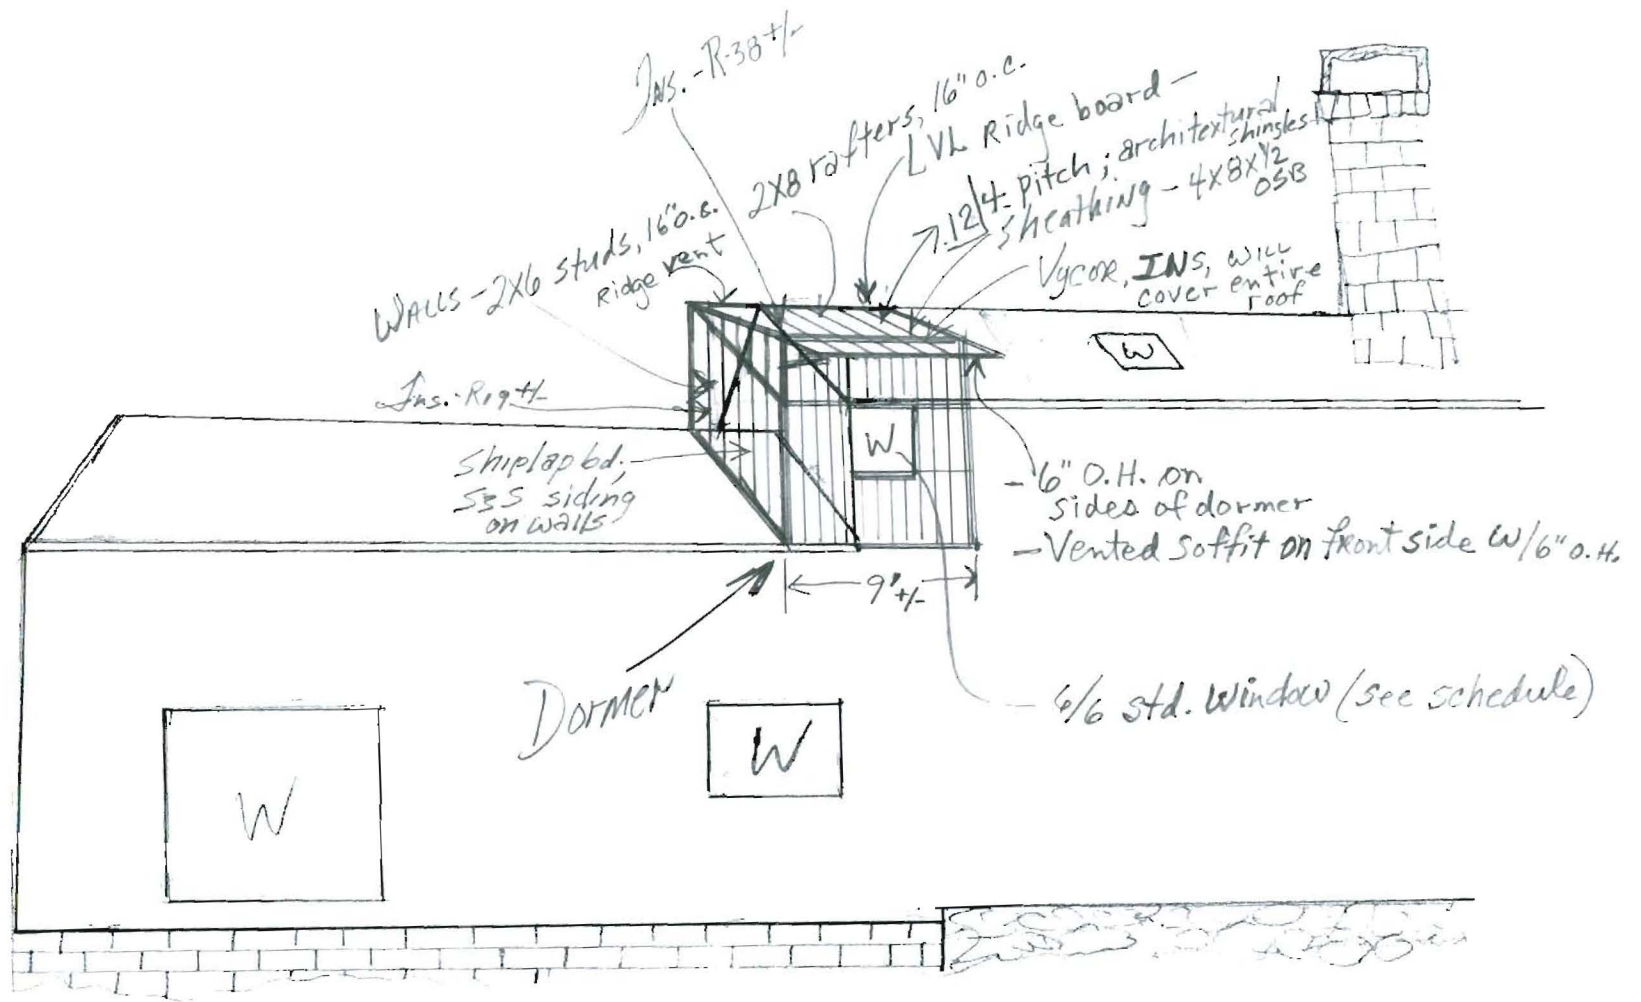 Ins.-R-38+/-
2X8 rafters, 16" o.c.
LVL Ridge board -
12/4 pitch; architextural
shingles
sheathing - 4X8X1/2
OSB
Walls - 2X6 studs, 16" o.c.
Ridge vent
Vycor, INS, will
cover entire
roof
W
Ins.-R19+/-
W
Shiplap bd.,
S3S siding
on walls
- 6" O.H. on
sides of dormer
- Vented Soffit on front side W/6" O.H.
9'+/-
Dormer
6/6 std. Window (see schedule)
W
W